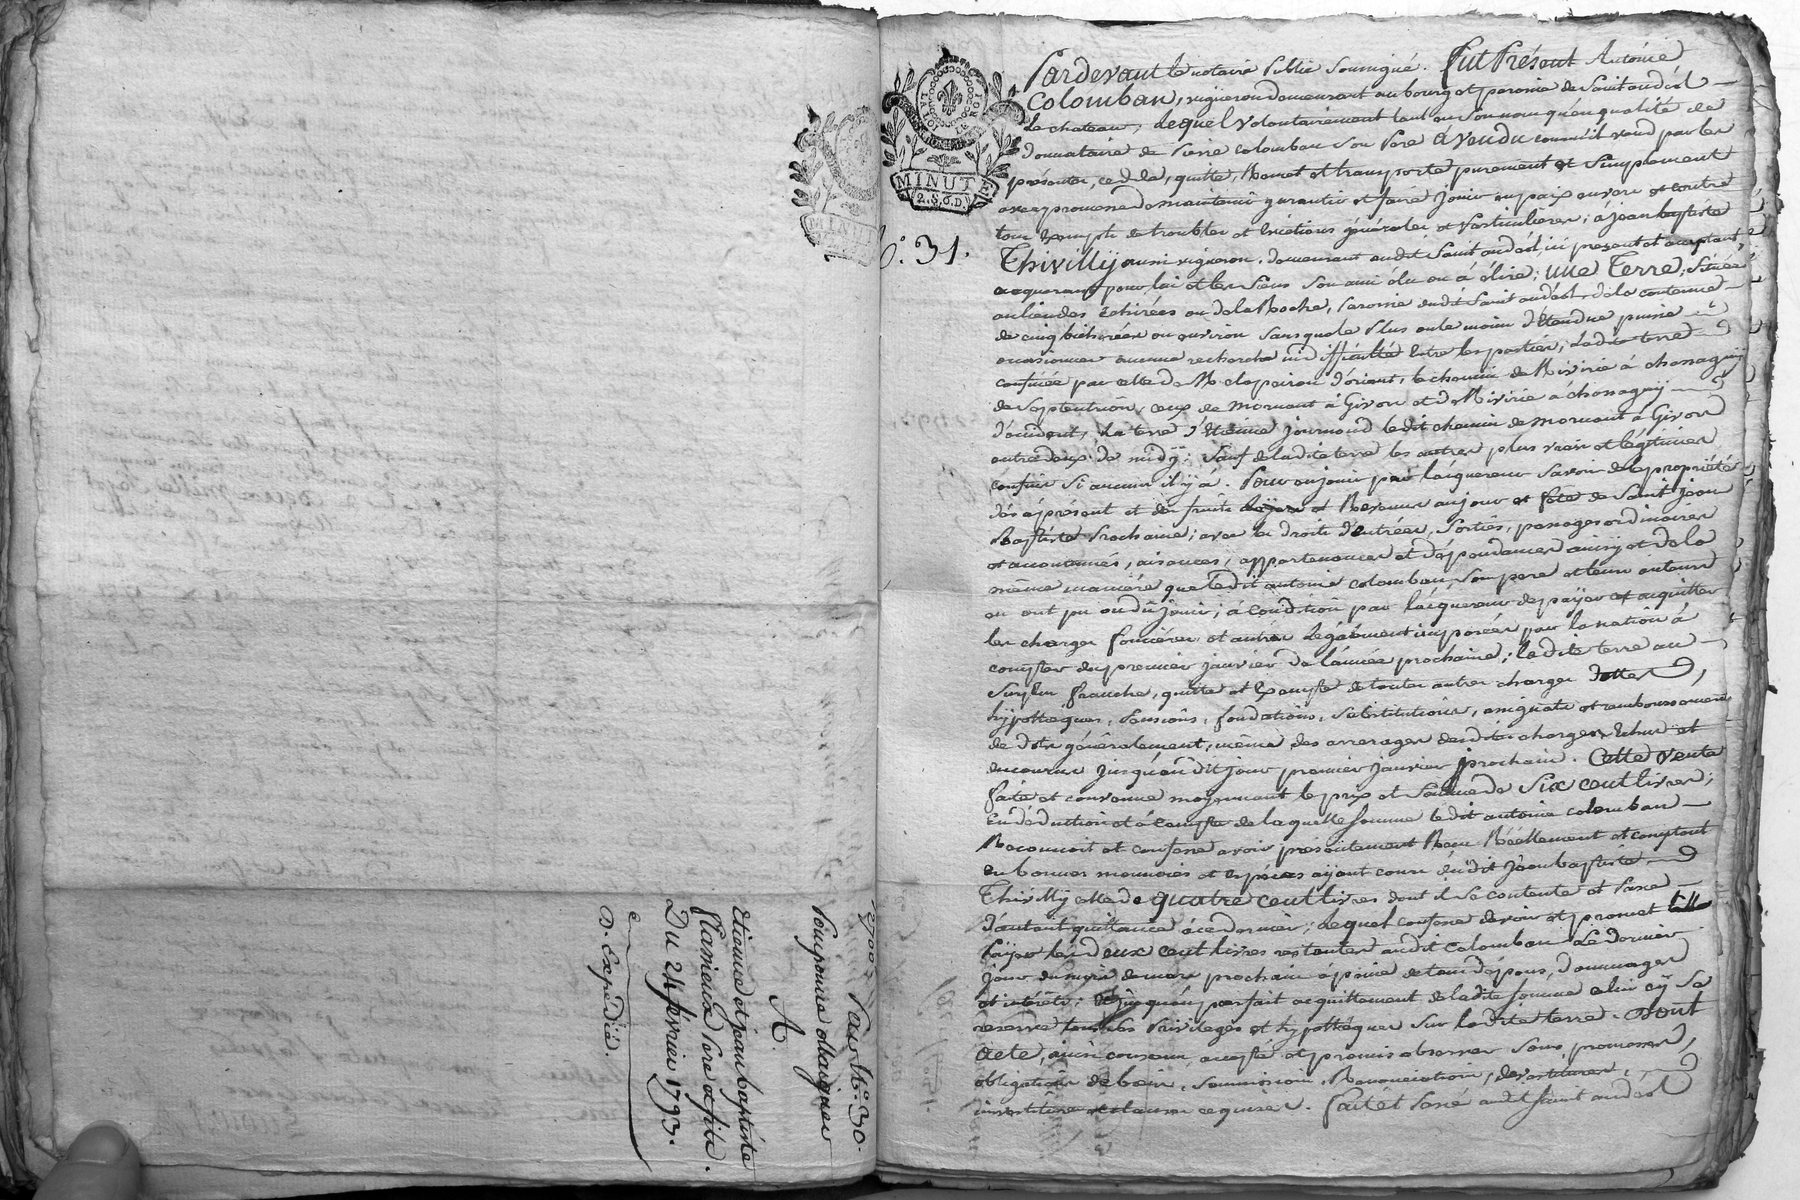 LA LOI
LE ROI
MINUTE
2.S.6.D.
N.º 31.
Pardevant le notaire Public soussigné. fut Présent Antoine
Colomban, vigneron demeurant au bourg et paroisse de Saint andéol
le chateau, Lequel volontairement tant en son nom qu'en qualité de
donnataire de Pierre Colomban Son Pere à vendu comme il vend par les
présentes, cede, quitte, Remet et transporte purement et Simplement
avec promesse de maintenir garantir et faire Jouir en paix envers et contre
tous Exempte de troubles et Evictions générales et Particulieres; à jean baptiste
Thivilly aussi vigneron, demeurant audit Saint andéol ici présent et acceptant,
acquerant pour lui et les Siens Son ami élu ou à élire; une Terre, Située
au lieu des échirées ou de la Roche, Paroisse dudit Saint andéol, de la contenue
de cinq bicherées ou environ Sans que le Plus ou le moins d'étendue puisse
occasionner aucune recherche ni difficulté Entre les parties; Ladite terre
confinée par celle de M. clapeiron d'orient, le chemin de Rivirie à chassagny
de Septentrion, ceux de mornant à Givors et de Rivirie à chassagny
d'occident, La terre d'Etienne Journoud ledit chemin de mornant à Givors
entredeux de midy; Sauf de ladite terre les autres plus vrais et légitimes
confins Si aucuns il y a. Pour en jouir par l'acquereur Savoir de la propriété
dès àprésent et des fruits et Revenus au jour et fête de Saint Jean
Baptiste Prochaine; avec les droits d'entrées, Sorties, passages ordinaires
et accoutumés, aisances, appartenances et dépendances ainsy et de la
même maniere que ledit antoine colomban, Son pere et leurs auteurs
en ont pu ou dû jouir; à condition par l'acquereur de payer et acquitter
les charges foncieres et autres légalement imposées par la nation à
compter du premier janvier de l'année prochaine; ladite terre au
Surplus franche, quitte et Exempte de toutes autres charges Dettes,
hypotteques, Pensions, fondations, Substitutions, assignats et remboursement
de dots généralement, même des arrerages desdites charges Echus et
encourus jusqu'audit jour premier janvier prochain. Cette vente
faite et convenue moyennant le prix et Somme de Six cent livres;
En déduction et à compte de laquelle Somme ledit antoine colomban
Reconnoit et confesse avoir présentement Reçu Réellement et comptant
en bonnes monnoies et Especes ayant cours dudit Jean baptiste
Thivilly celle de quatre cent livres dont il Se contente et Passe
d'autant quittance à ce dernier; Lequel confesse devoir et promet
payer les deux cent livres restantes audit Colomban Le dernier
jour du mois de mars prochain à peine de tous dépens, dommages
et intérêts; jusqu'au parfait acquittement de ladite Somme celui cy Se
reserve tous les Privileges et hypotteques Sur ladite terre. Dont
Acte, ainsi convenu accepté et promis observer Sous promesses,
obligations de biens, Soumissions, Renonciations, devestitures,
investitures et clauses requises. Fait et Passé audit Saint andéol
Pour le N.º 30.
Pouponne
A
etienne et jean baptiste
Plasnieux Pere et fils.
Du 24 février 1793.
D. Expédié.